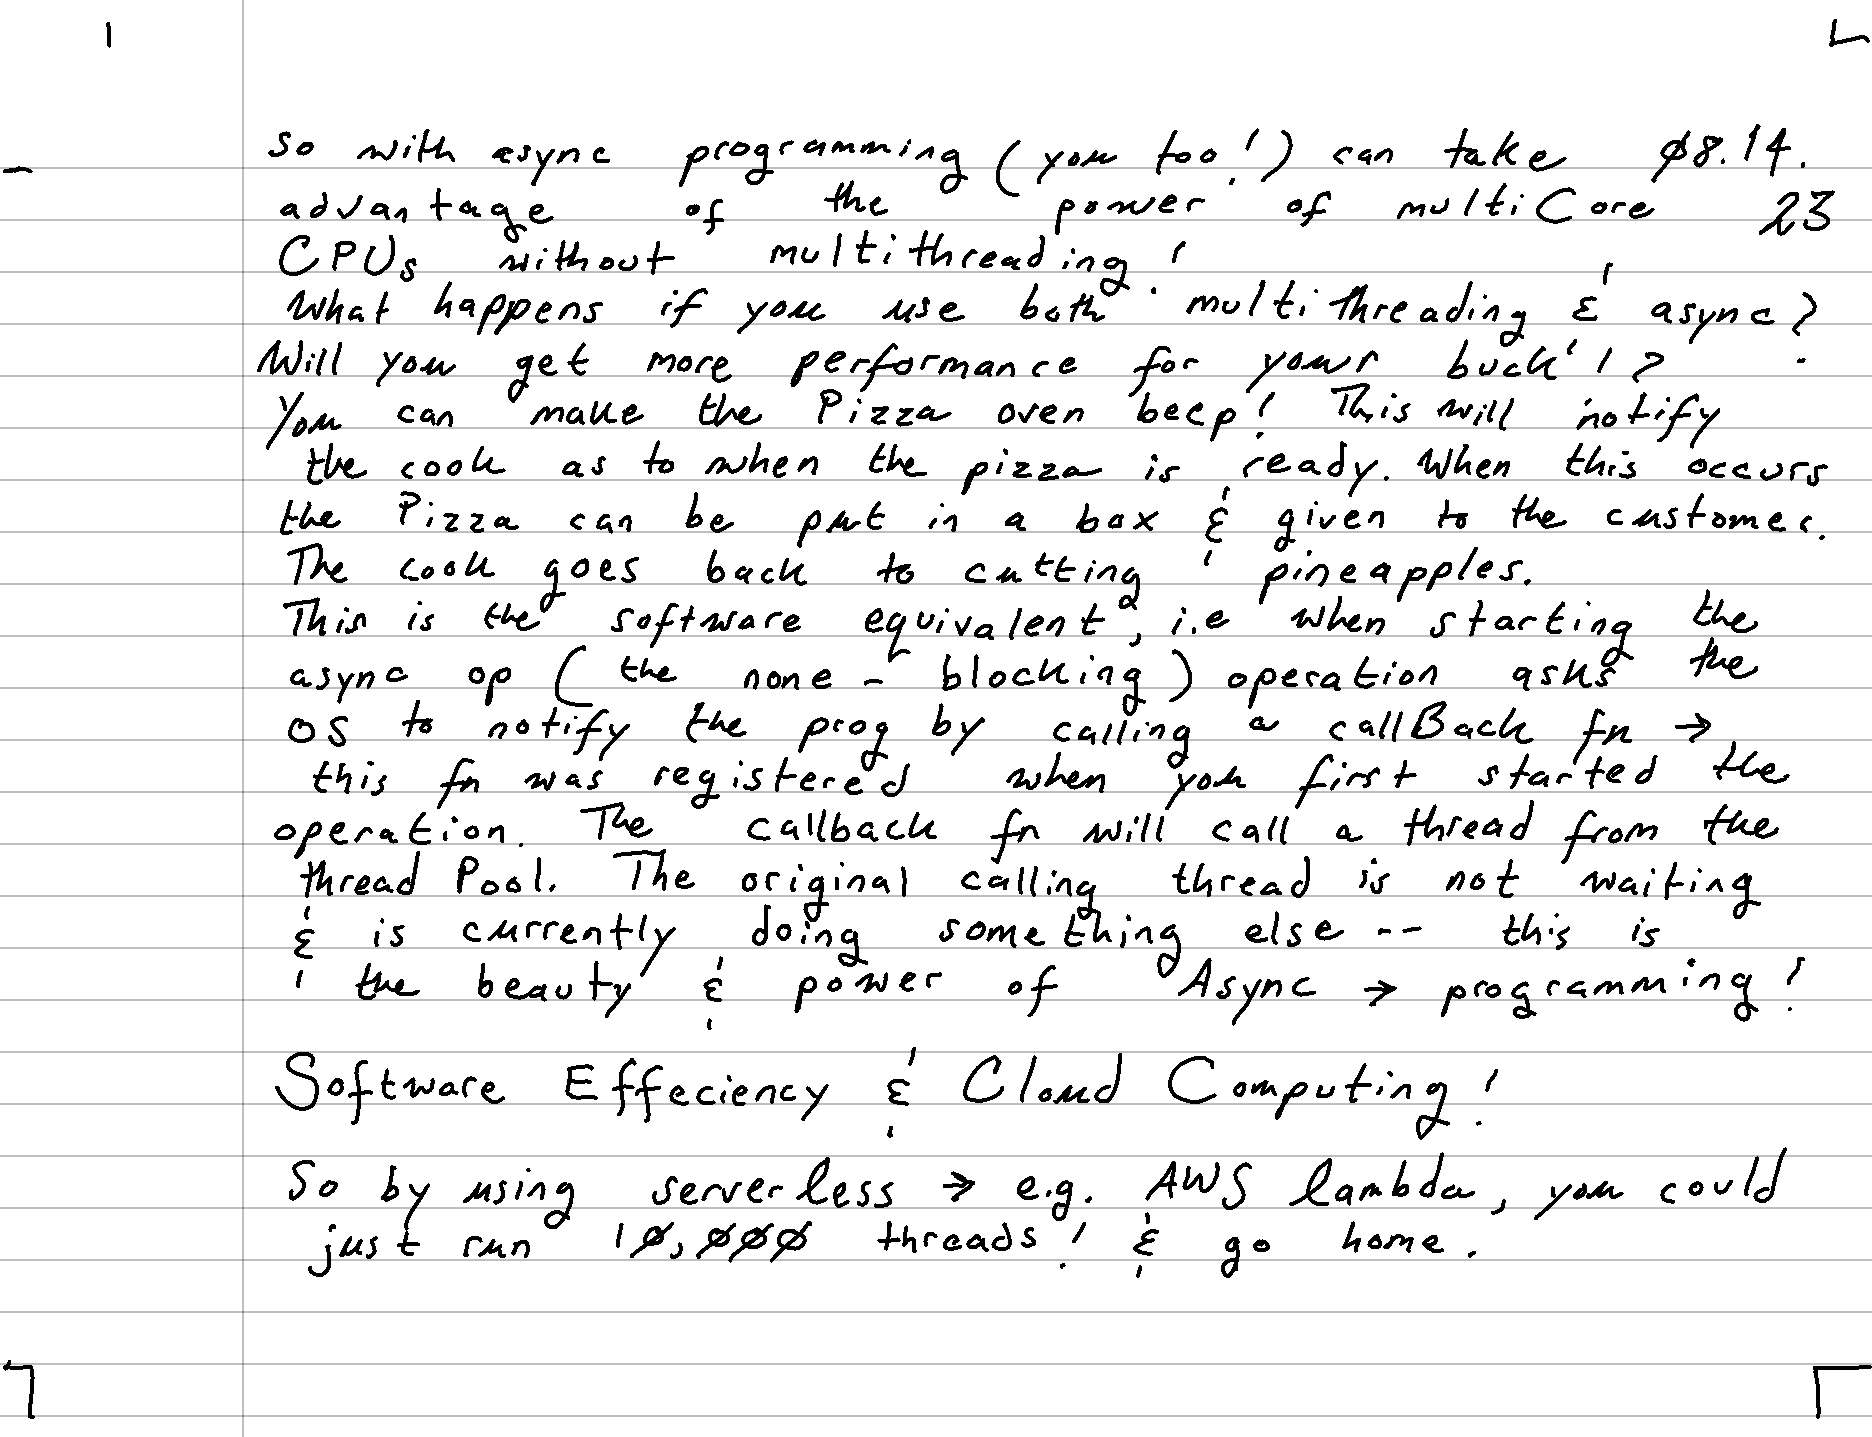 So with async programming (you too!) can take Ø8.14.
advantage of the power of multiCore 23
CPUs without multithreading!
What happens if you use both multithreading & async?
Will you get more performance for your buck'!?
You can make the Pizza oven beep! This will notify
the cook as to when the pizza is ready. When this occurs
the Pizza can be put in a box & given to the customer.
The cook goes back to cutting pineapples.
This is the software equivalent, i.e when starting the
async op (the none-blocking) operation asks the
OS to notify the prog by calling a callBack fn →
this fn was registered when you first started the
operation. The callback fn will call a thread from the
thread Pool. The original calling thread is not waiting
& is currently doing something else -- this is
the beauty & power of Async → programming!
Software Effeciency & Cloud Computing!
So by using serverless → e.g. AWS lambda, you could
just run 1Ø,ØØØ threads! & go home.